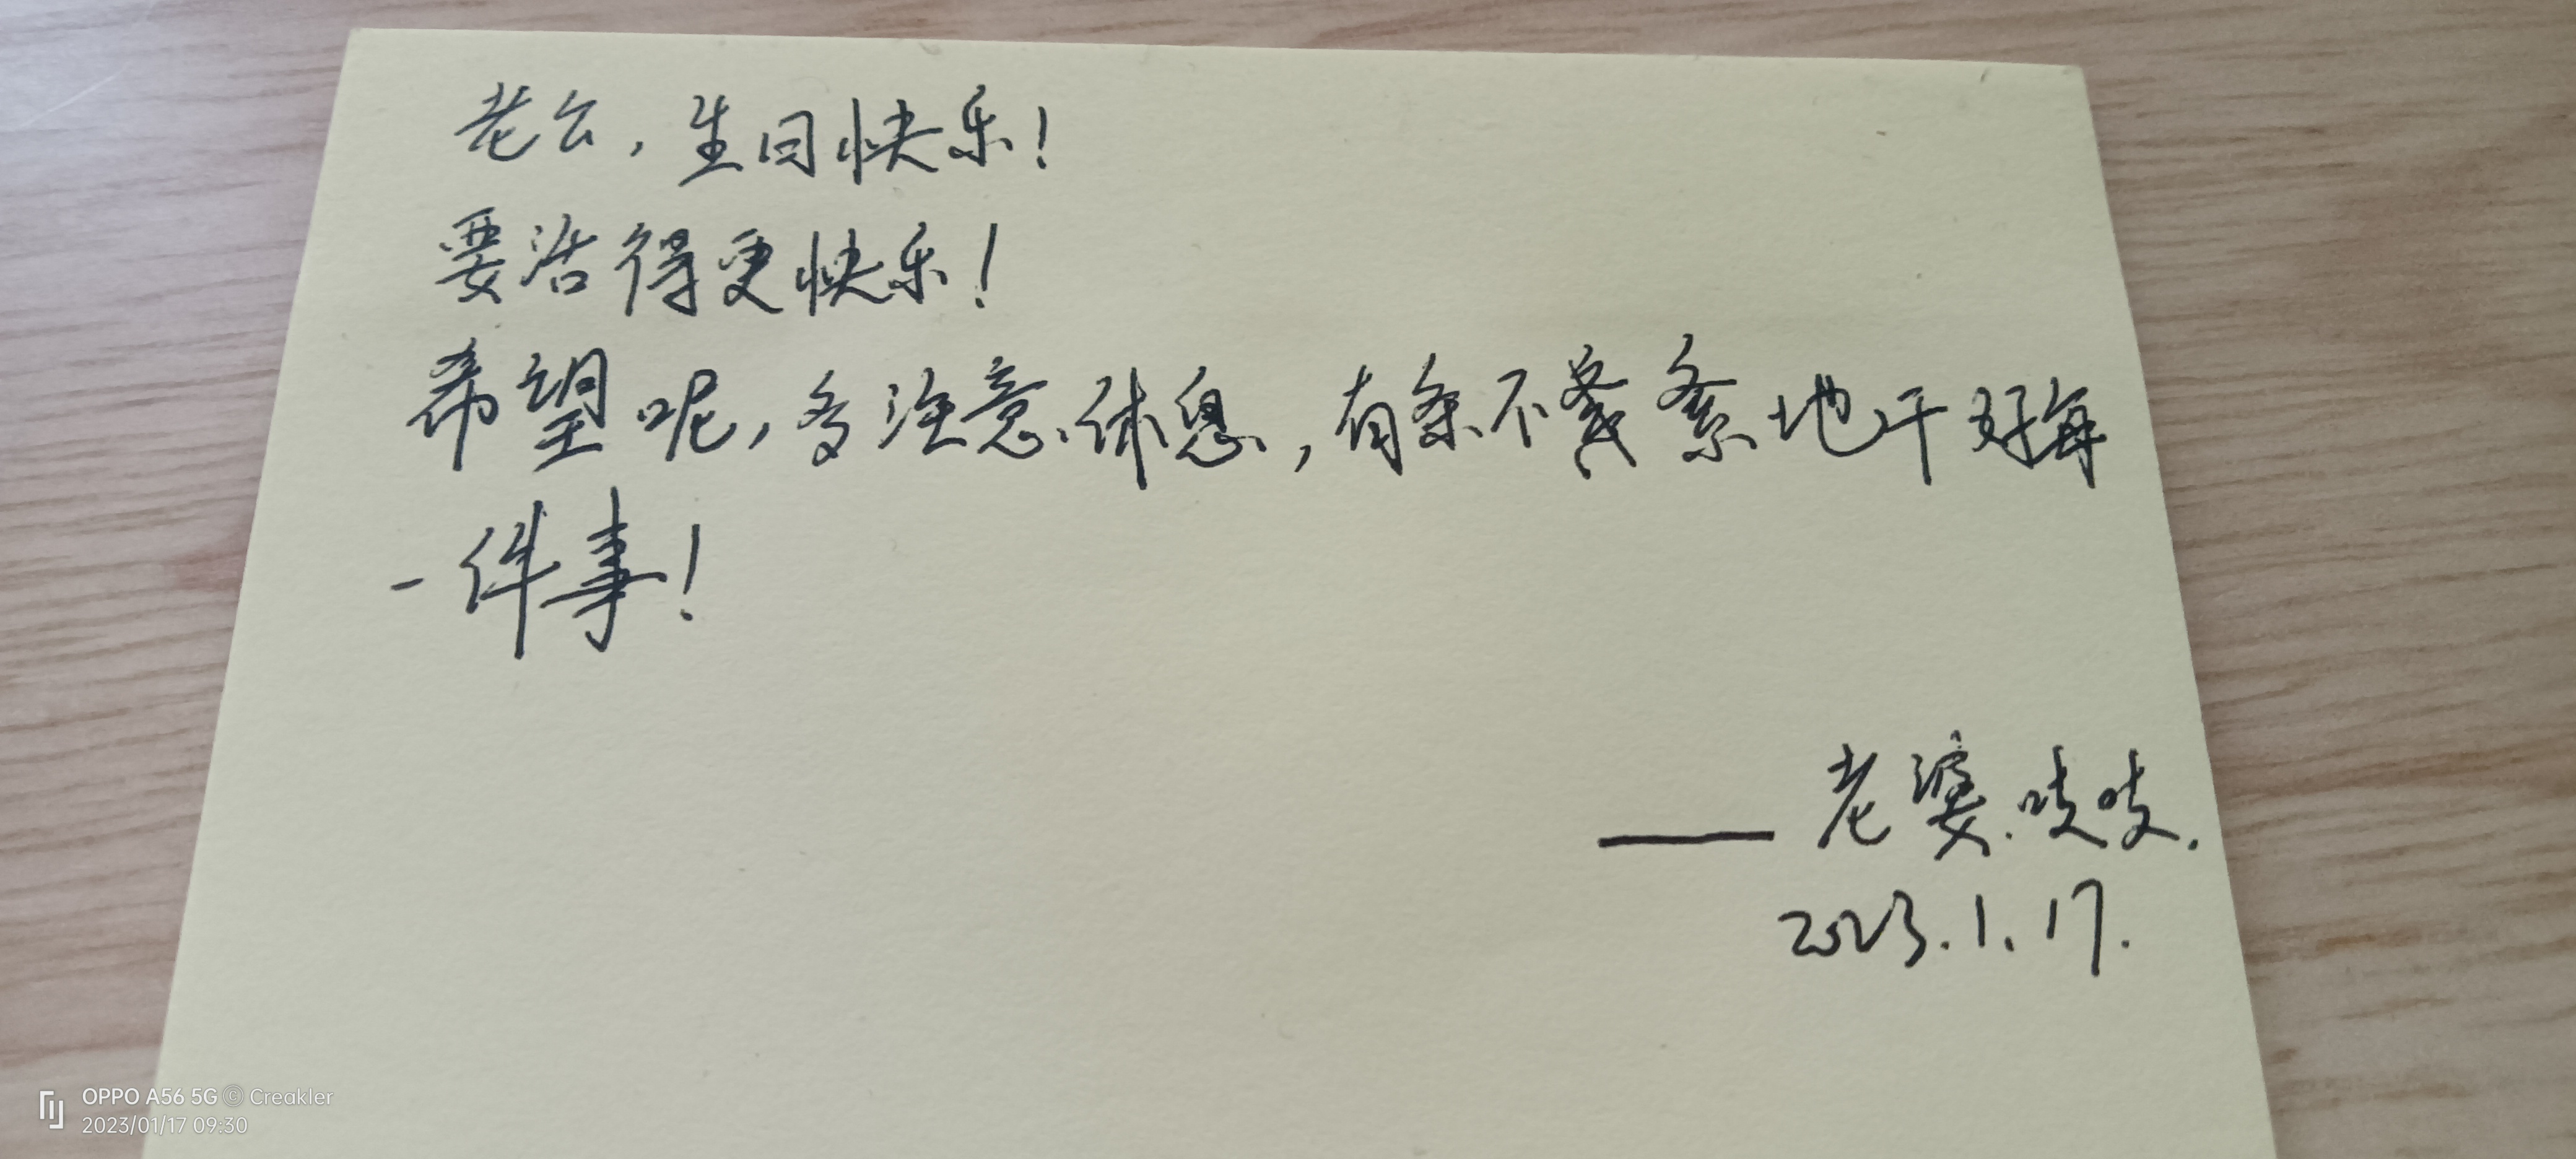 老公，生日快乐！
要活得更快乐！
希望呢，多注意休息，有条不紊地干好每
一件事！
——老婆.吱吱.
2023.1.17.
OPPO A56 5G © Creakler
2023/01/17 09:30